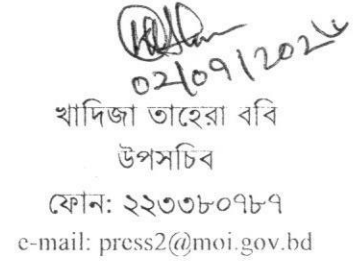 02/09/2024
খাদিজা তাহেরা ববি
উপসচিব
ফোন: ২২৩৩৮০৭৮৭
e-mail: press2@moi.gov.bd